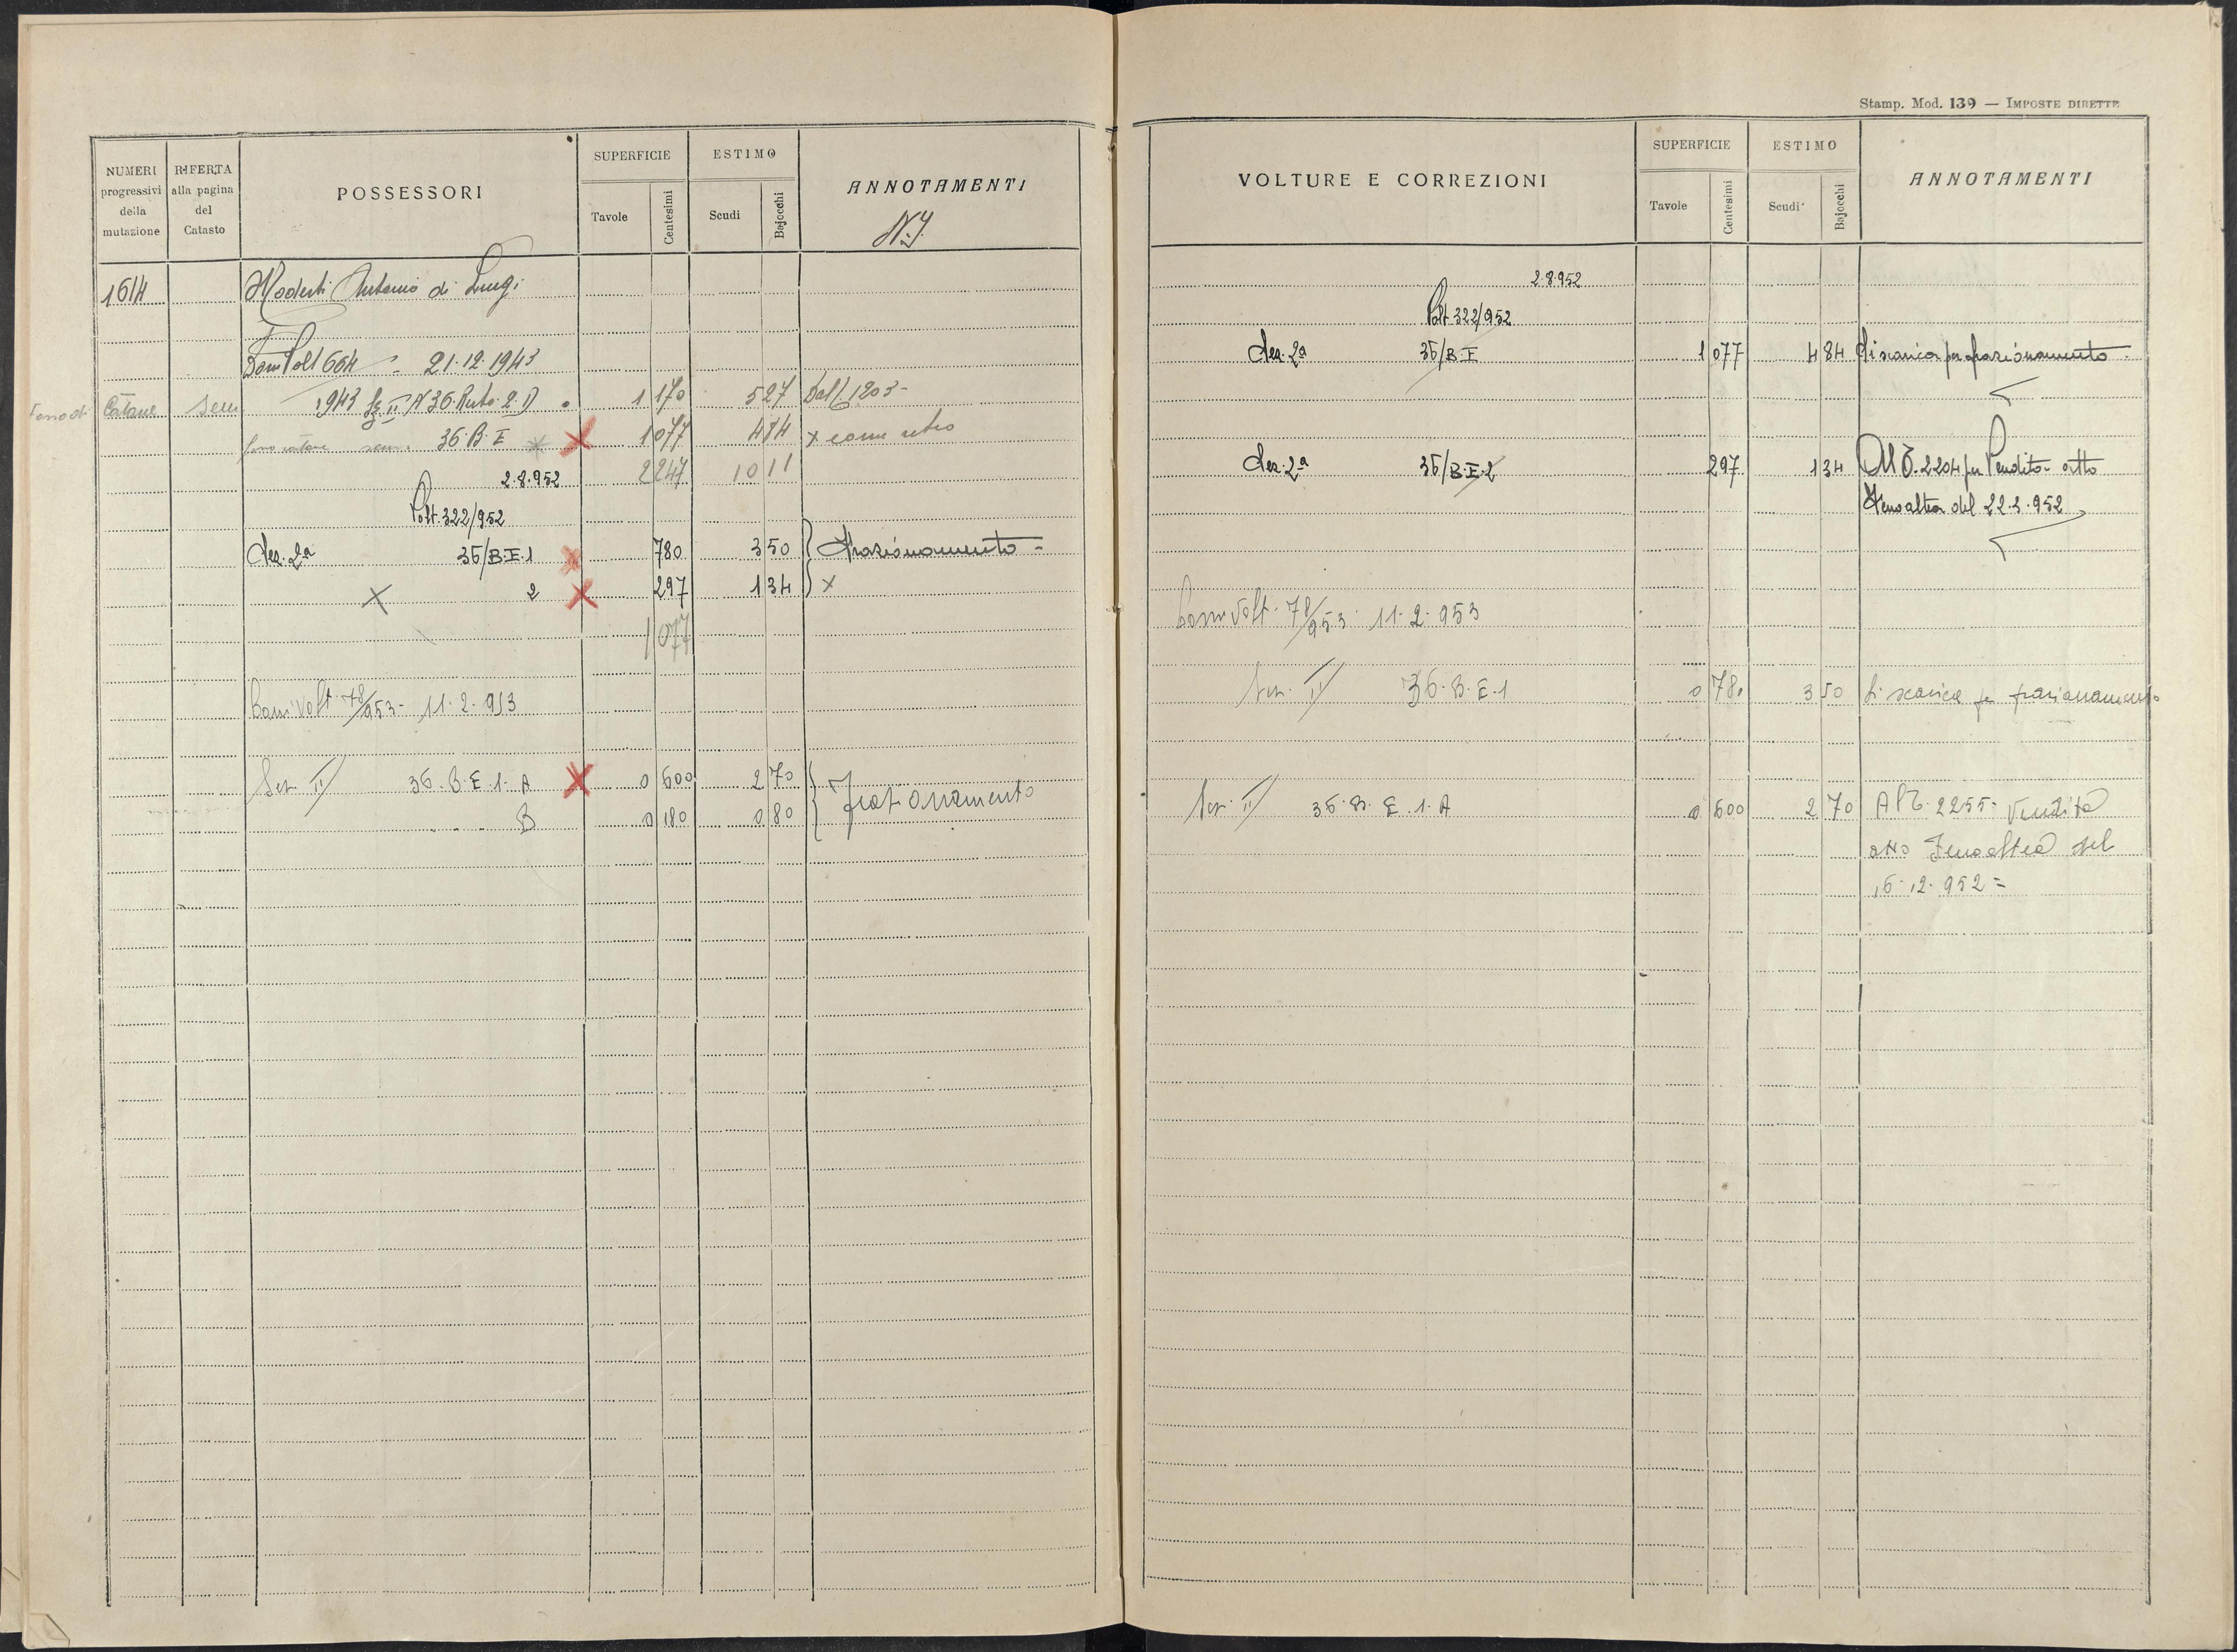 NUMERI progressivi della mutazione
RIFERTA alla pagina del Catasto
POSSESSORI
SUPERFICIE
Tavole
Centesimi
ESTIMO
Scudi
Bajocchi
ANNOTAMENTI
1614 Modesti Antonio di Luigi
Volt 664 - 21.12.1943
1943 Sez II N 36 2.D 1 170 527 Dall 1203-
36.B.E 1 077 484 x come
2 247 10 11
2.8.952
Volt. 322/952
Sez. 2ª 36/B.E.1 780 3 50 Frazionamento =
x 2 297 1 34 x
1 077
Volt. 78/953 - 11.2.953
Sez II 36.B.E.1.A 0 600 2 70 Frazionamento
B 0 180 0 80
Stamp. Mod. 139 — IMPOSTE DIRETTE
VOLTURE E CORREZIONI
SUPERFICIE
Tavole
Centesimi
ESTIMO
Scudi
Bajocchi
ANNOTAMENTI
2.8.952
Volt 322/952
Sez. 2ª 36/B.E 1 077 4 84 Si scarica per frazionamento
Sez. 2ª 36/B.E.2 297 1 34 All 2204 per Vendita - atto
Fenoaltea del 22.3.952
Volt. 78/953 11.2.953
Sez. II 36.B.E.1 0 780 3 50 Si scarica per frazionamento
Sez. II 36.B.E.1.A 0 600 2 70 2255 = Vendita
atto Fenoaltea del
16.12.952 =